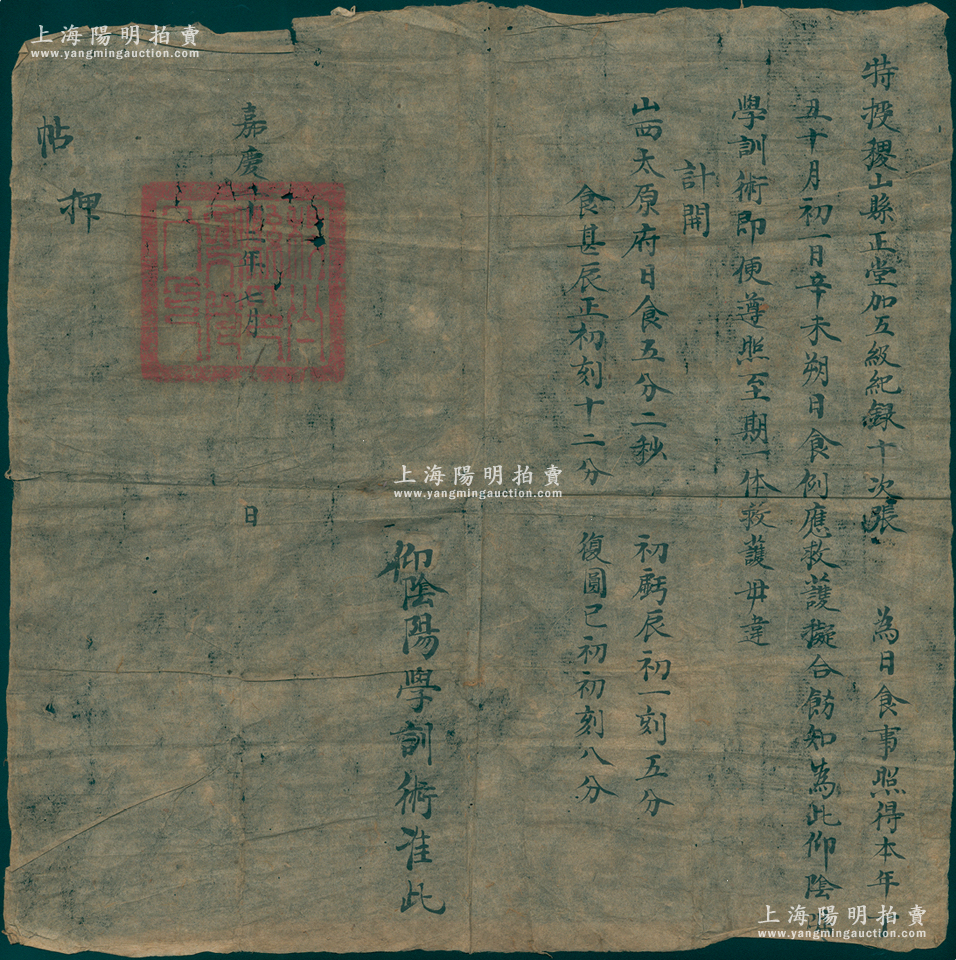 特授稷山縣正堂加五級紀録十次張 為日食事照得本年丁
丑十月初一日辛未朔日食例應救護擬合飭知為此仰陰陽
學訓術即便遵照至期一体救護毋違
計開
山西太原府日食五分二秒 初虧辰初一刻五分
食甚辰正初刻十二分 復圓巳初初刻八分
仰陰陽學訓術准此
嘉慶二十二年七月 日
帖押
上海陽明拍賣
www.yangmingauction.com
上海陽明拍賣
www.yangmingauction.com
上海陽明拍賣
www.yangmingauction.com